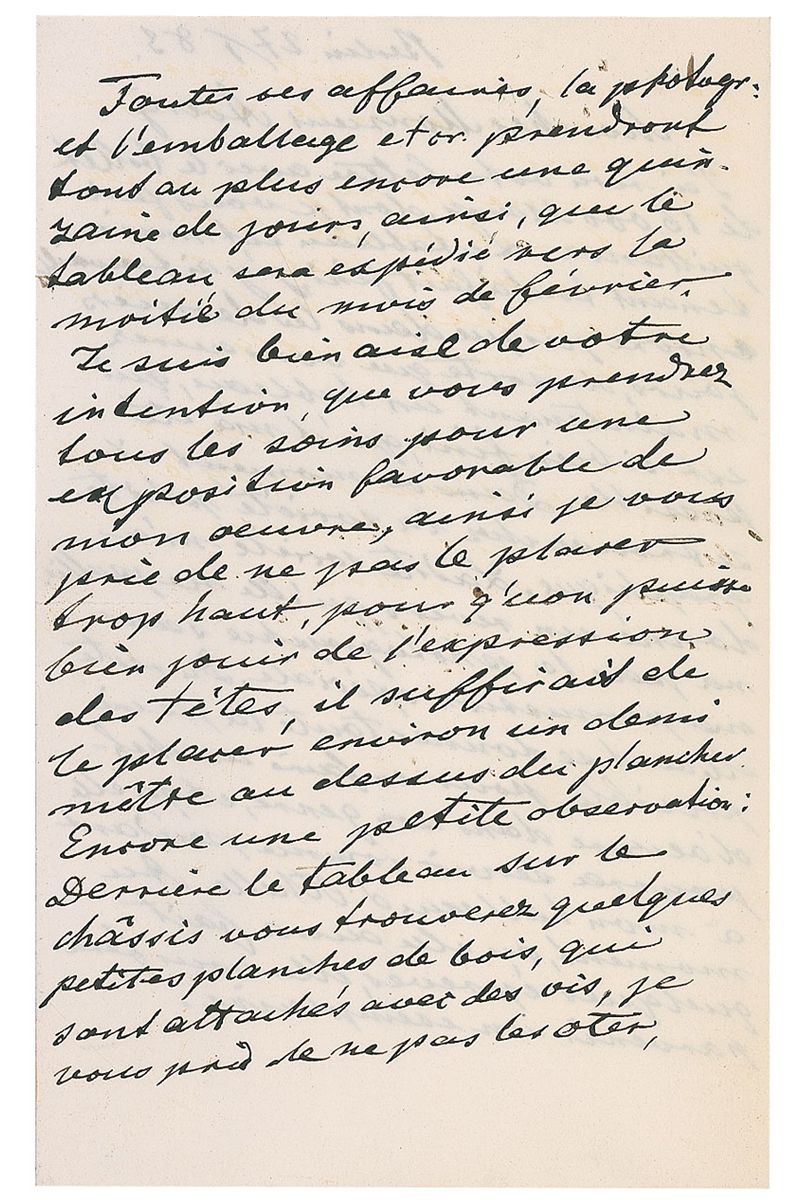 Toutes ces affaires, la photogr:
et l'emballage etcr. prendront
tout au plus encore une quin-
zaine de jours, ainsi, que le
tableau sera expédié vers la
moitié du mois de février.
Je suis bien aise de votre
intention, que vous prendrez
tous les soins pour une
exposition favorable de
mon oeuvre, ainsi je vous
prie de ne pas le placer
trop haut, pour qu'on puisse
bien jouir de l'expression
des têtes, il suffirait de
le placer environ un demi
mêtre au dessus du plancher.
Encore une petite observation:
Derrière le tableau sur le
châssis vous trouverez quelques
petites planches de bois, qui
sont attachés avec des vis, je
vous prie de ne pas les oter,